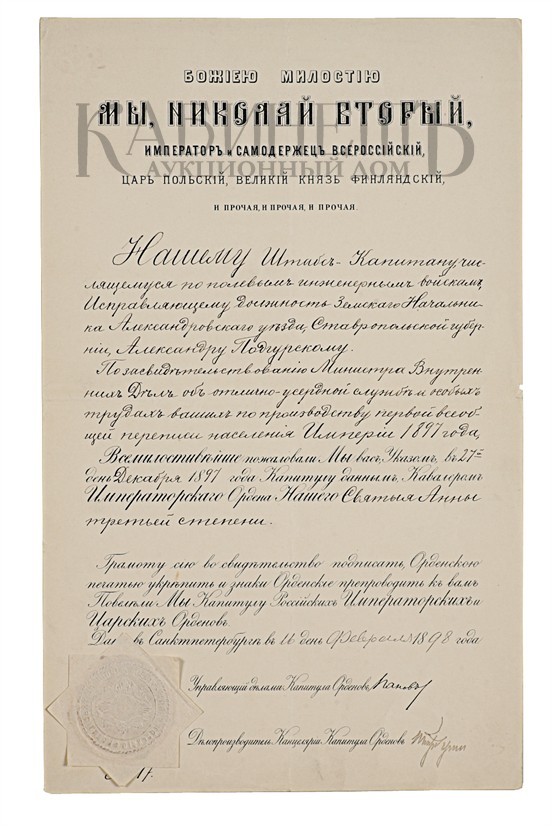 БОЖІЕЮ МИЛОСТІЮ
МЫ, НИКОЛАЙ ВТОРЫЙ,
КАБИНЕТЪ
ИМПЕРАТОРЪ и САМОДЕРЖЕЦЪ ВСЕРОССІЙСКІЙ,
АУКЦИОННЫЙ ДОМ
ЦАРЬ ПОЛЬСКІЙ, ВЕЛИКІЙ КНЯЗЬ ФИНЛЯНДСКІЙ,
И ПРОЧАЯ, И ПРОЧАЯ, И ПРОЧАЯ.
Нашему Штабсъ-Капитану, чис-
лящемуся по полевымъ инженернымъ войскамъ,
Исправляющему должность Земскаго Начальни-
ка Александровскаго уѣзда, Ставропольской губер-
ніи, Александру Подгурскому.
По засвидѣтельствованію Министра Внутрен-
нихъ Дѣлъ объ отлично-усердной службѣ и особыхъ
трудахъ вашихъ по производству первой всеоб-
щей переписи населенія Имперіи 1897 года,
Всемилостивѣйше пожаловали Мы васъ, Указомъ, въ 27 й
день Декабря 1897 года Капитулу даннымъ, Кавалеромъ
Императорскаго Ордена Нашего Святыя Анны
третьей степени.
Грамоту сію во свидѣтельство подписать, Орденскою
печатью укрѣпить и знаки Орденскіе препроводить къ вамъ
Повелѣли Мы Капитулу Россійскихъ Императорскихъ и
Царскихъ Орденовъ.
въ Санктпетербургѣ въ 16 день Февраля 1898 года
Управляющій дѣлами Капитула Орденовъ
Дѣлопроизводитель Канцеляріи Капитула Орденовъ